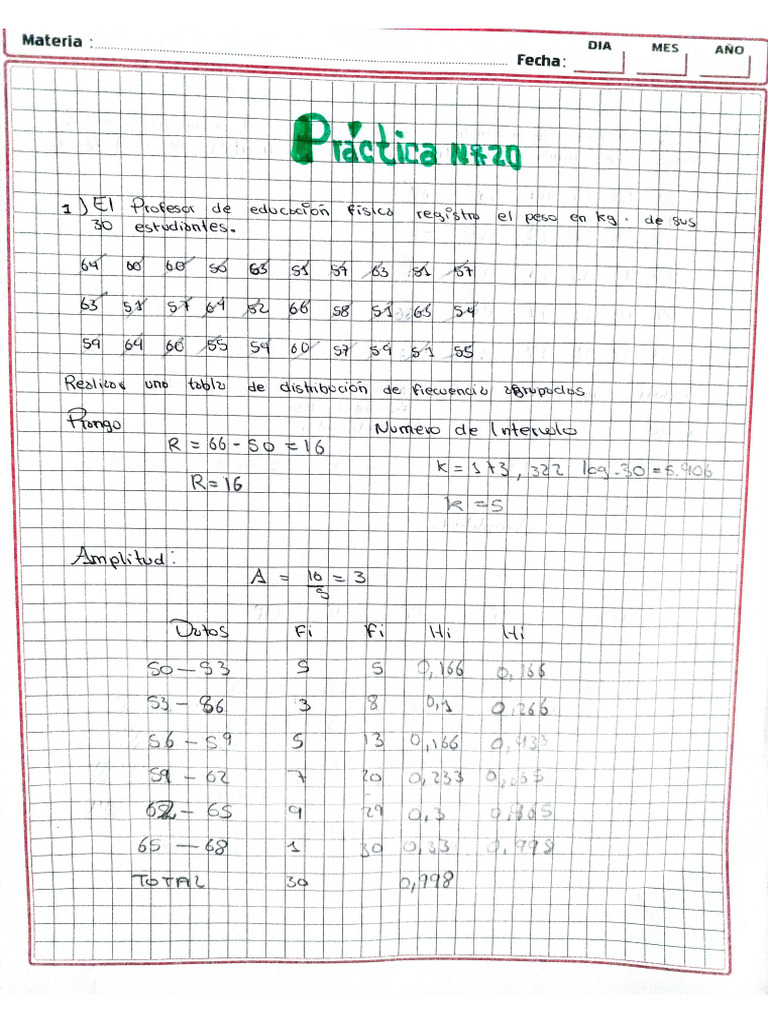 Materia :
DIA MES AÑO
Fecha:
Práctica Nº20
1) El Profesor de educación física registro el peso en kg. de sus
30 estudiantes.
64 60 60 50 63 51 57 63 51 57
63 51 57 64 52 66 58 51 63 54
59 64 60 55 59 60 57 54 51 55
Realicar una tabla de distribución de frecuencia agrupados
Rango
Numero de Intervalo
R = 66 - 50 = 16
K = 1+3,322 log. 30 = 5.906
R = 16
K = 5
Amplitud:
A = 16/5 = 3
Datos Fi Fi Hi Hi
50 — 53 5 5 0,166 0,166
53 — 56 3 8 0,1 0,266
56 — 59 5 13 0,166 0,433
59 — 62 7 20 0,233
62 — 65 9 29 0,3
65 — 68 1 30 0,33 0,998
TOTAL 30 0,998